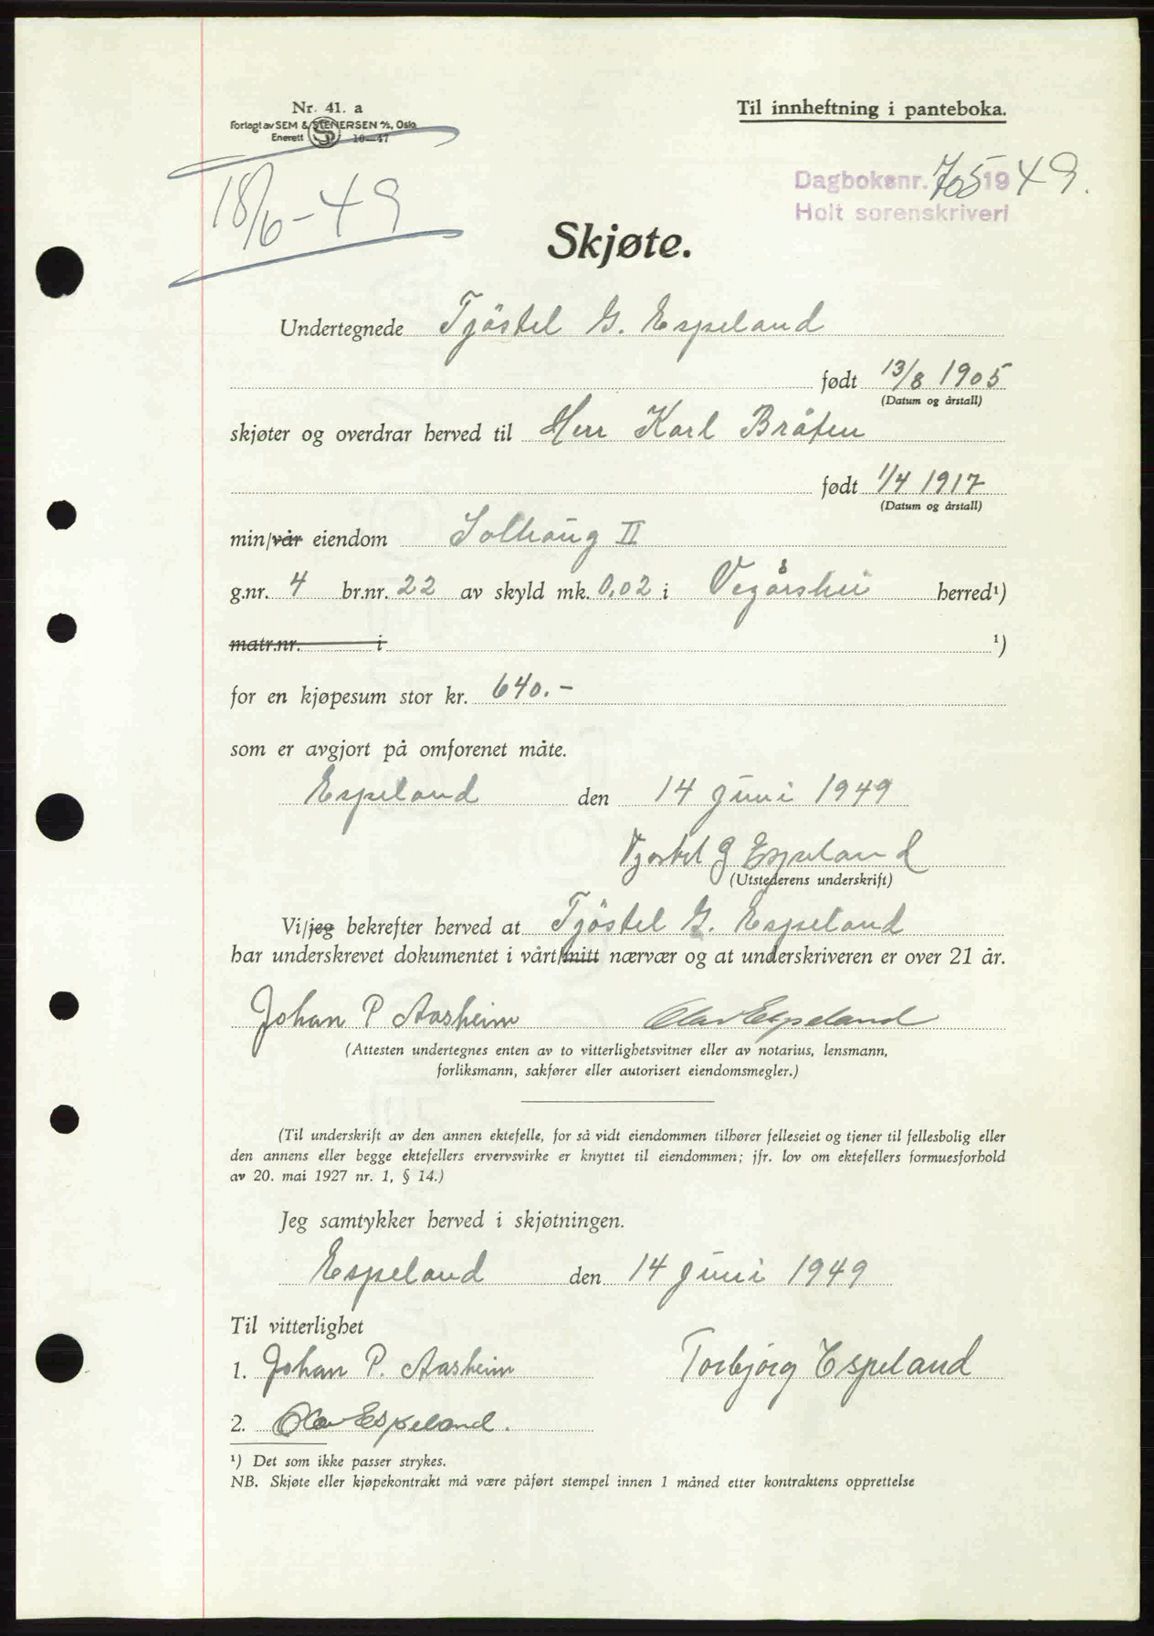 Nr. 41. a
Forlagt av SEM & STENERSEN A/S, Oslo
Enerett 10—47
Til innheftning i panteboka.
18/6-49
Dagboksnr. 705 1949.
Holt sorenskriveri
Skjøte.
Undertegnede Tjöstel G. Espeland
født 13/8 1905
(Datum og årstall)
skjøter og overdrar herved til Herr Karl Bråten
født 1/4 1917
(Datum og årstall)
min/vår eiendom Solhaug II
g.nr. 4 br.nr. 22 av skyld mk. 0,02 i Vegårshei herred¹)
matr.nr. i ¹)
for en kjøpesum stor kr. 640.-
som er avgjort på omforenet måte.
Espeland den 14 Juni 1949
Tjostel G Espeland
(Utstederens underskrift)
Vi/jeg bekrefter herved at Tjöstel G. Espeland
har underskrevet dokumentet i vårt/mitt nærvær og at underskriveren er over 21 år.
Johan P Aasheim Olav Espeland
(Attesten undertegnes enten av to vitterlighetsvitner eller av notarius, lensmann,
forliksmann, sakfører eller autorisert eiendomsmegler.)
(Til underskrift av den annen ektefelle, for så vidt eiendommen tilhører felleseiet og tjener til fellesbolig eller
den annens eller begge ektefellers ervervsvirke er knyttet til eiendommen; jfr. lov om ektefellers formuesforhold
av 20. mai 1927 nr. 1, § 14.)
Jeg samtykker herved i skjøtningen.
Espeland den 14 Juni 1949
Til vitterlighet
1. Johan P. Aasheim Torbjörg Espeland
2. Olav Espeland.
¹) Det som ikke passer strykes.
NB. Skjøte eller kjøpekontrakt må være påført stempel innen 1 måned etter kontraktens opprettelse